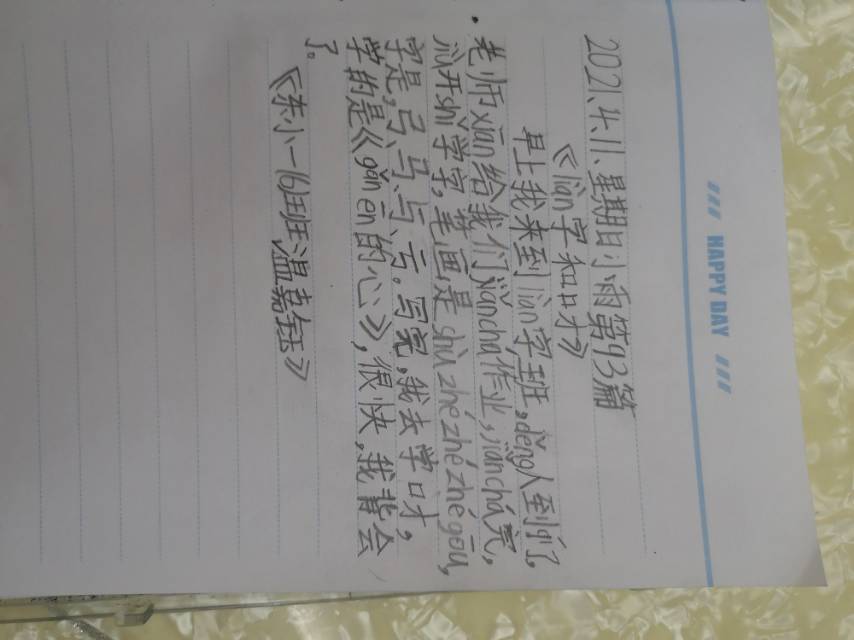 /// HAPPY DAY ///
2021.4.11.星期日小雨第93篇
《liàn字和口才》
早上我来到liàn字班,děng人到齐了,
老师xiān给我们jiǎnchá作业,jiǎnchá完,
从开shǐ学字,笔画是shù zhé zhé zhé gōu,
字是,弓、马、与、亏。写完,我去学口才,
学的是《gǎn ēn的心》,很快,我背会
了。
《东小一(6)班温嘉钰》